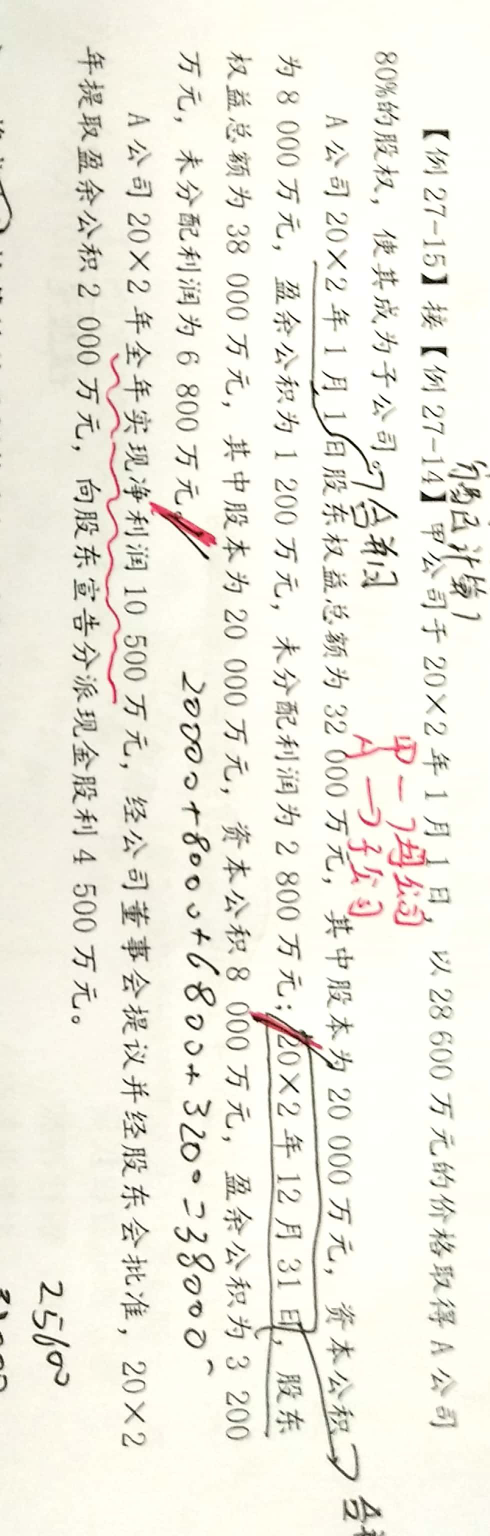 【例 27-15】接【例 27-14】甲公司于 20×2 年 1 月 1 日，以 28 600 万元的价格取得 A 公司
80%的股权，使其成为子公司。
A 公司 20×2 年 1 月 1 日股东权益总额为 32 000 万元，其中股本为 20 000 万元，资本公积
为 8 000 万元，盈余公积为 1 200 万元，未分配利润为 2 800 万元；20×2 年 12 月 31 日，股东
权益总额为 38 000 万元，其中股本为 20 000 万元，资本公积 8 000 万元，盈余公积为 3 200
万元，未分配利润为 6 800 万元。
A 公司 20×2 年全年实现净利润 10 500 万元，经公司董事会提议并经股东会批准，20×2
年提取盈余公积 2 000 万元，向股东宣告分派现金股利 4 500 万元。
甲→母公司
A→子公司
20000+8000+6800+3200=38000
25600